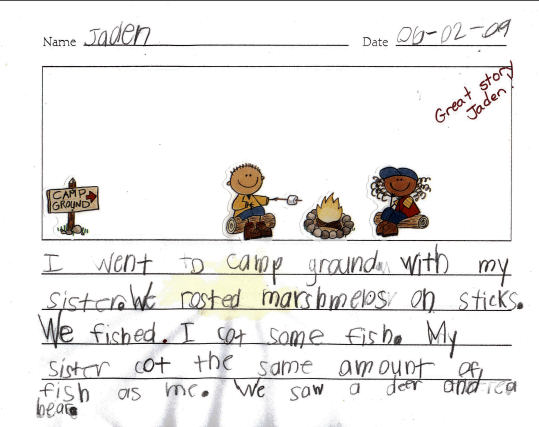 Name Jaden Date 06-02-09
Great story
Jaden
CAMP
GROUND
I went to camp ground with my
sister. We rosted marshmelos on sticks.
We fished. I cot some fish. My
sister cot the same amount of
fish as me. We saw a deer and
bear.